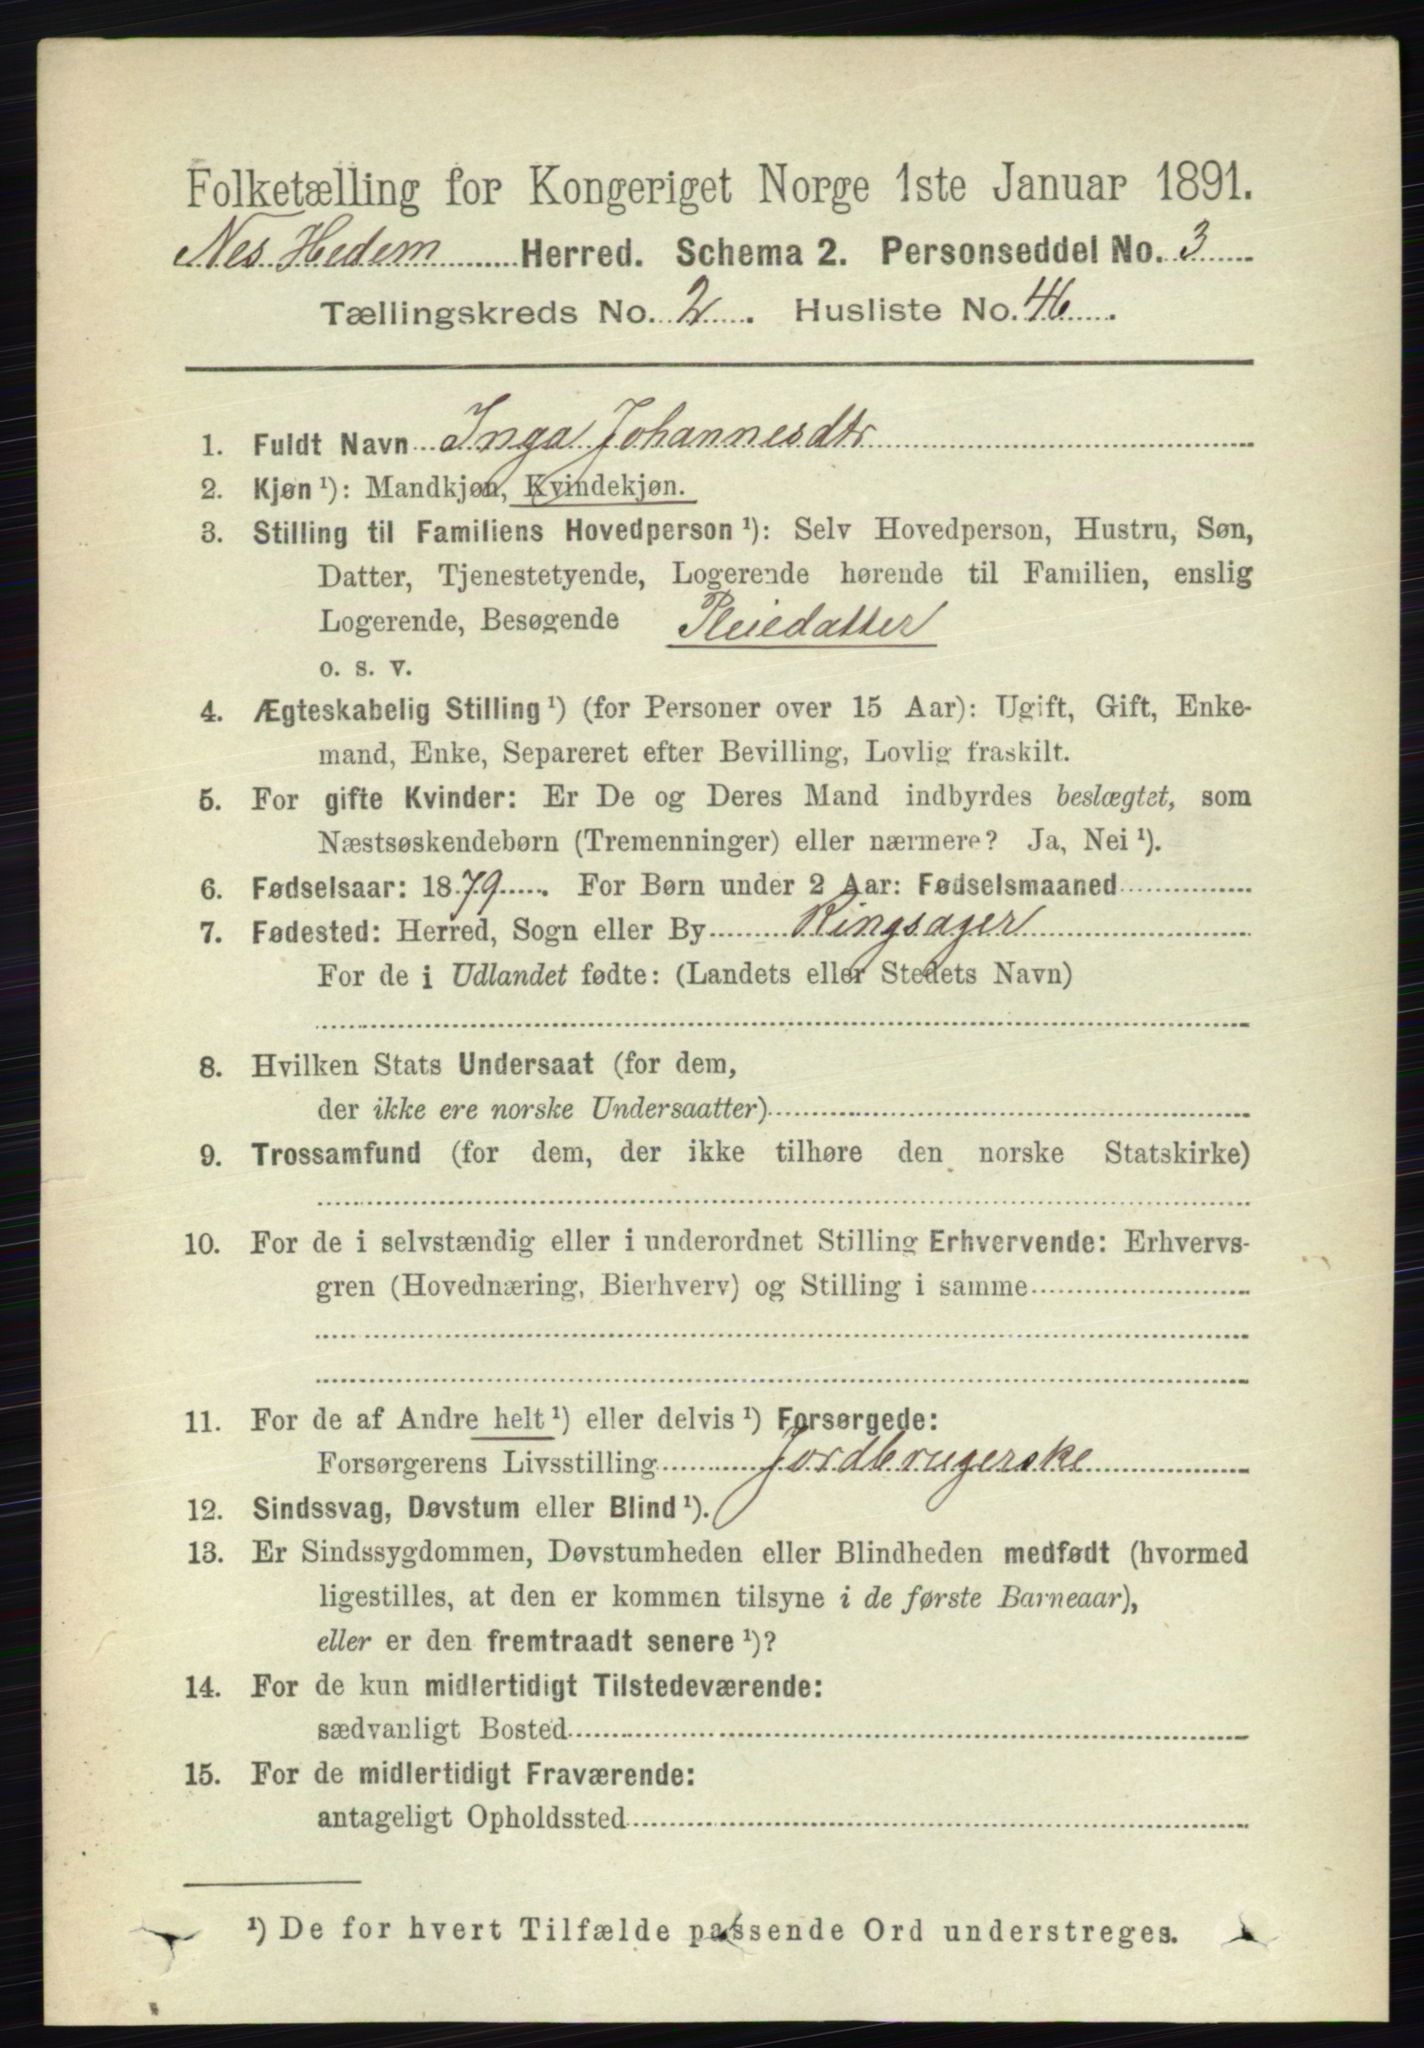 Folketælling for Kongeriget Norge 1ste Januar 1891.
Nes Hedem Herred. Schema 2. Personseddel No. 3
Tællingskreds No. 2. Husliste No. 46.
1. Fuldt Navn Inga Johannesdtr
2. Kjøn ¹): Mandkjøn, Kvindekjøn.
3. Stilling til Familiens Hovedperson ¹): Selv Hovedperson, Hustru, Søn,
Datter, Tjenestetyende, Logerende hørende til Familien, enslig
Logerende, Besøgende Pleiedatter
o. s. v.
4. Ægteskabelig Stilling ¹) (for Personer over 15 Aar): Ugift, Gift, Enke-
mand, Enke, Separeret efter Bevilling, Lovlig fraskilt.
5. For gifte Kvinder: Er De og Deres Mand indbyrdes beslægtet, som
Næstsøskendebørn (Tremenninger) eller nærmere? Ja, Nei ¹).
6. Fødselsaar: 1879. For Børn under 2 Aar: Fødselsmaaned
7. Fødested: Herred, Sogn eller By Ringsager
For de i Udlandet fødte: (Landets eller Stedets Navn)
8. Hvilken Stats Undersaat (for dem,
der ikke ere norske Undersaatter)
9. Trossamfund (for dem, der ikke tilhøre den norske Statskirke)
10. For de i selvstændig eller i underordnet Stilling Erhvervende: Erhvervs-
gren (Hovednæring, Bierhverv) og Stilling i samme
11. For de af Andre helt ¹) eller delvis ¹) Forsørgede:
Forsørgerens Livsstilling Jordbrugerske
12. Sindssvag, Døvstum eller Blind ¹).
13. Er Sindssygdommen, Døvstumheden eller Blindheden medfødt (hvormed
ligestilles, at den er kommen tilsyne i de første Barneaar),
eller er den fremtraadt senere ¹)?
14. For de kun midlertidigt Tilstedeværende:
sædvanligt Bosted
15. For de midlertidigt Fraværende:
antageligt Opholdssted
¹) De for hvert Tilfælde passende Ord understreges.